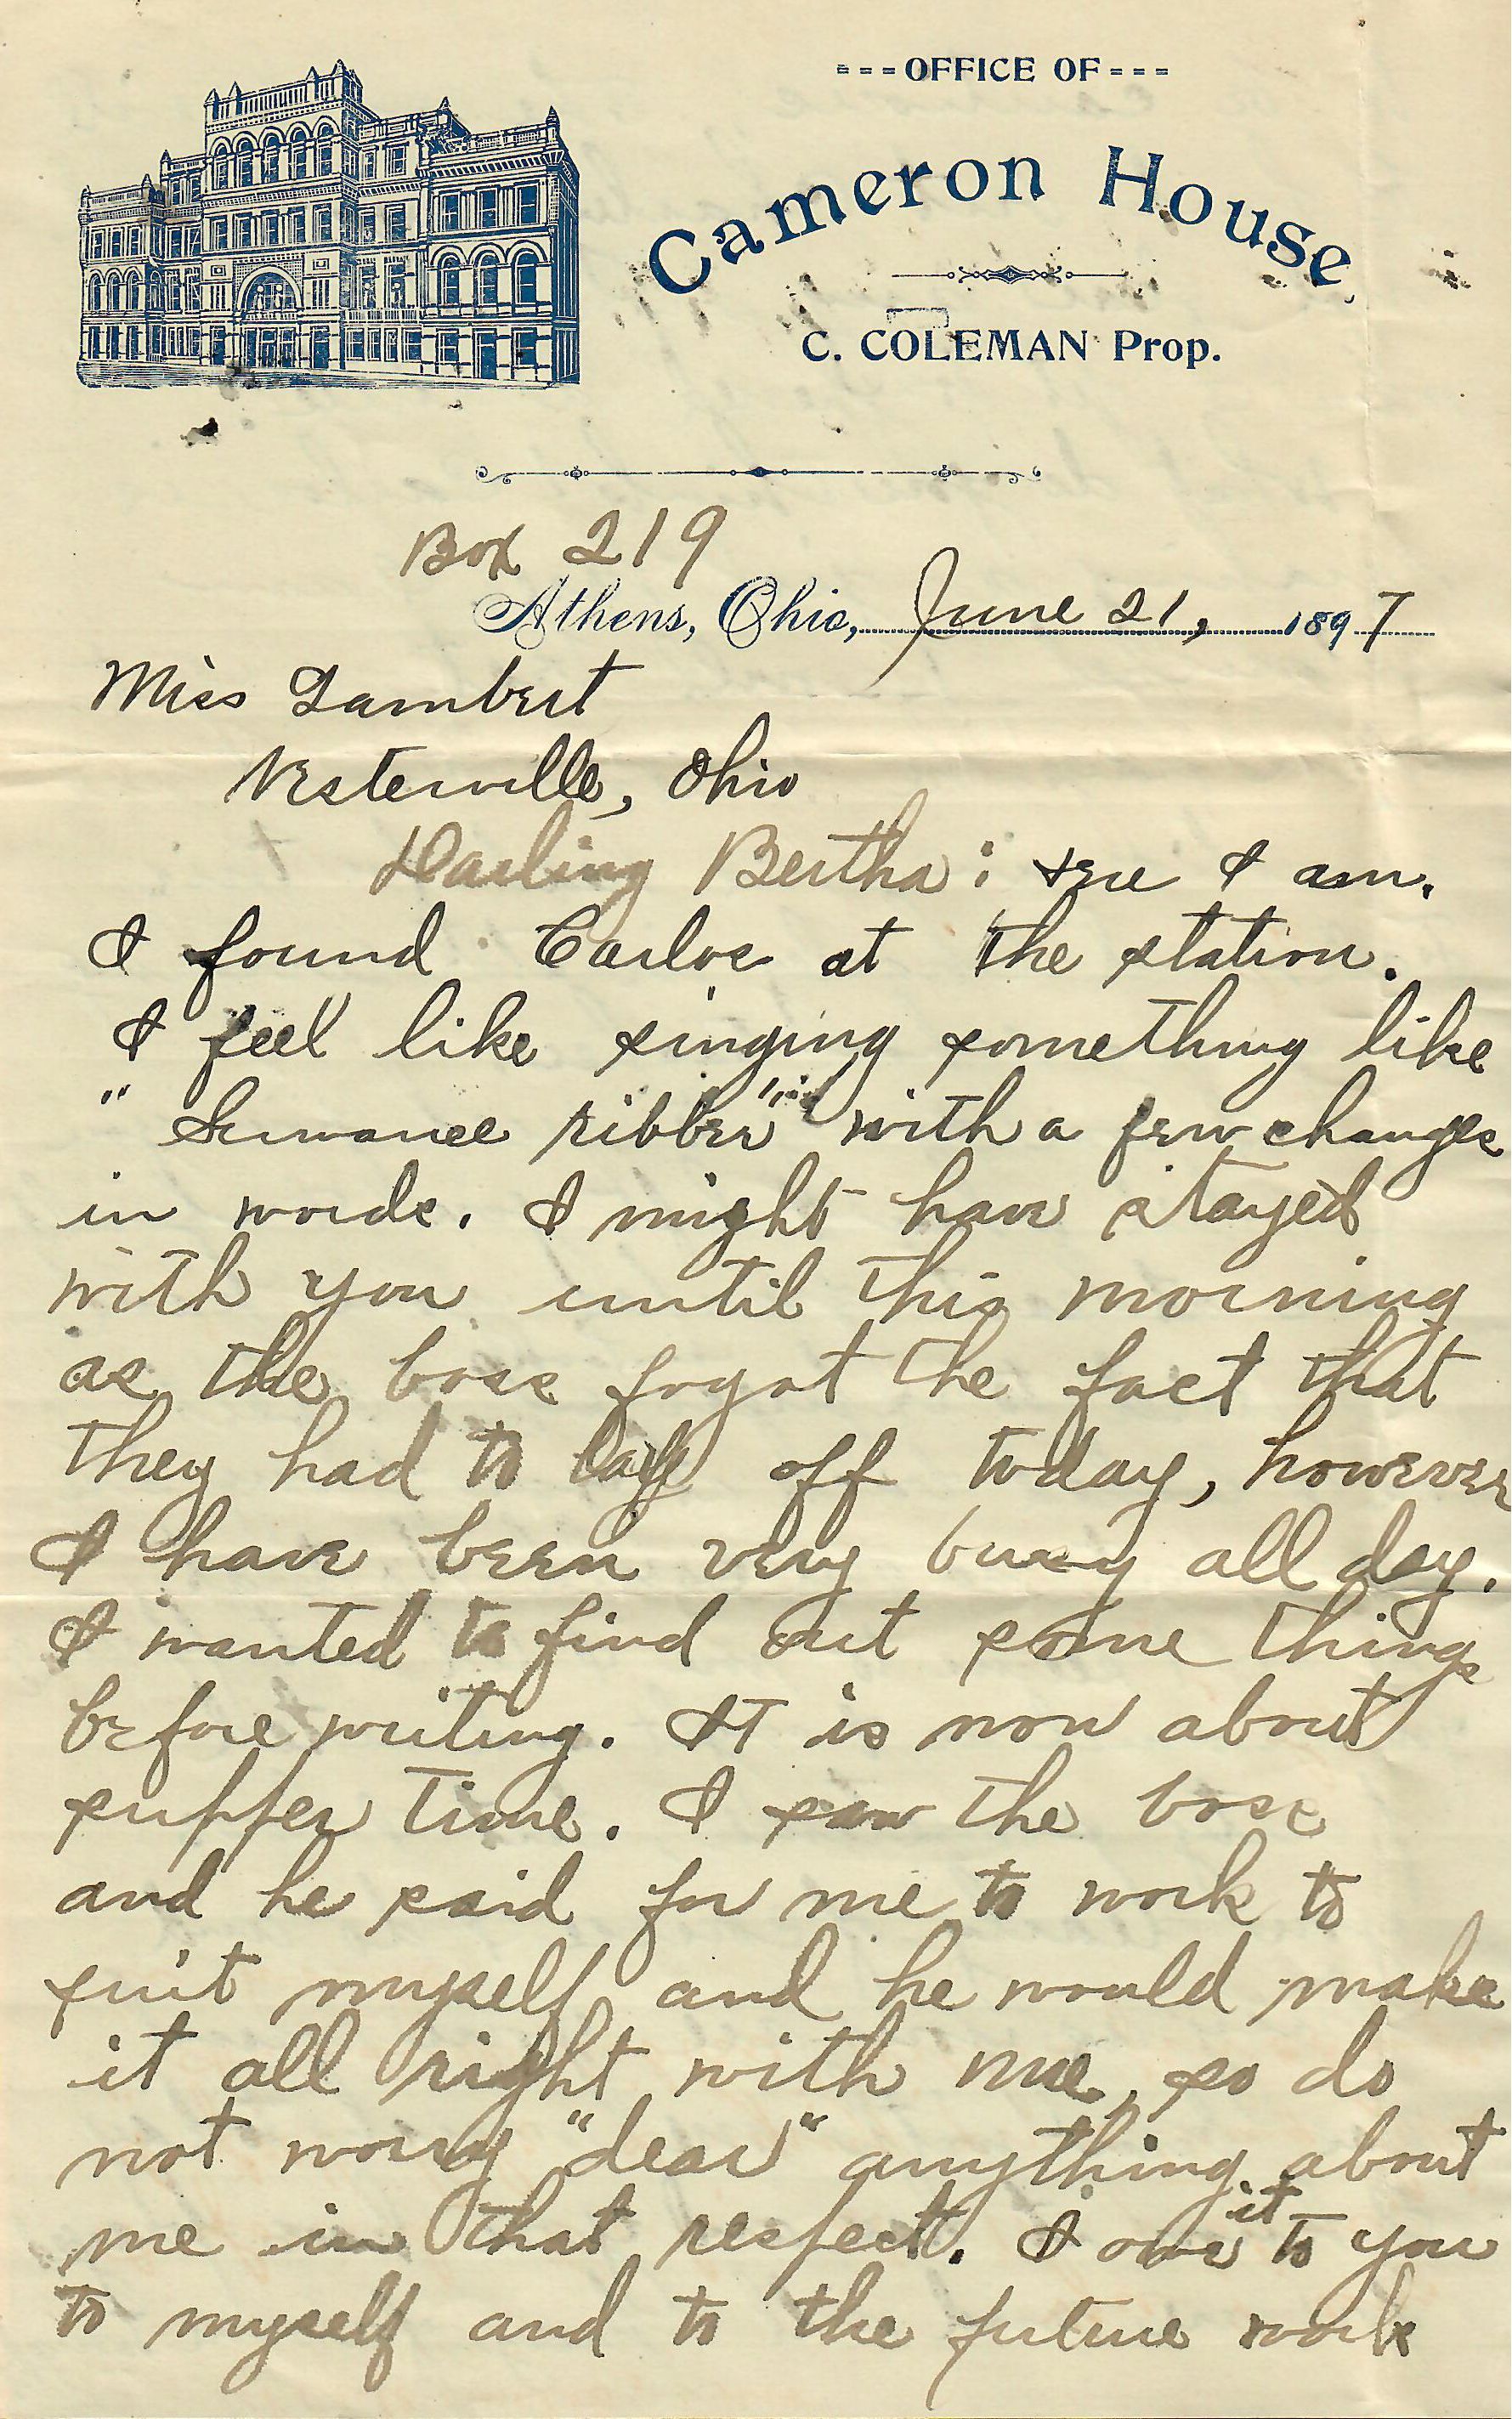 ---OFFICE OF---
Cameron House,
C. COLEMAN Prop.
Box 219
Athens, Ohio, June 21, 1897
Miss Lambert
Westerville, Ohio
Darling Bertha: Here I am.
I found Carlos at the station.
I feel like singing something like
"Suwanee ribber" with a few changes
in words. I might have stayed
with you until this morning
as the boss forgot the fact that
they had to lay off today, however
I have been very busy all day.
I wanted to find out some things
before writing. It is now about
supper time. I saw the boss
and he said for me to work to
suit myself and he would make
it all right with me, so do
not worry "dear" anything about
me in that respect. I owe it to you
to myself and to the future work